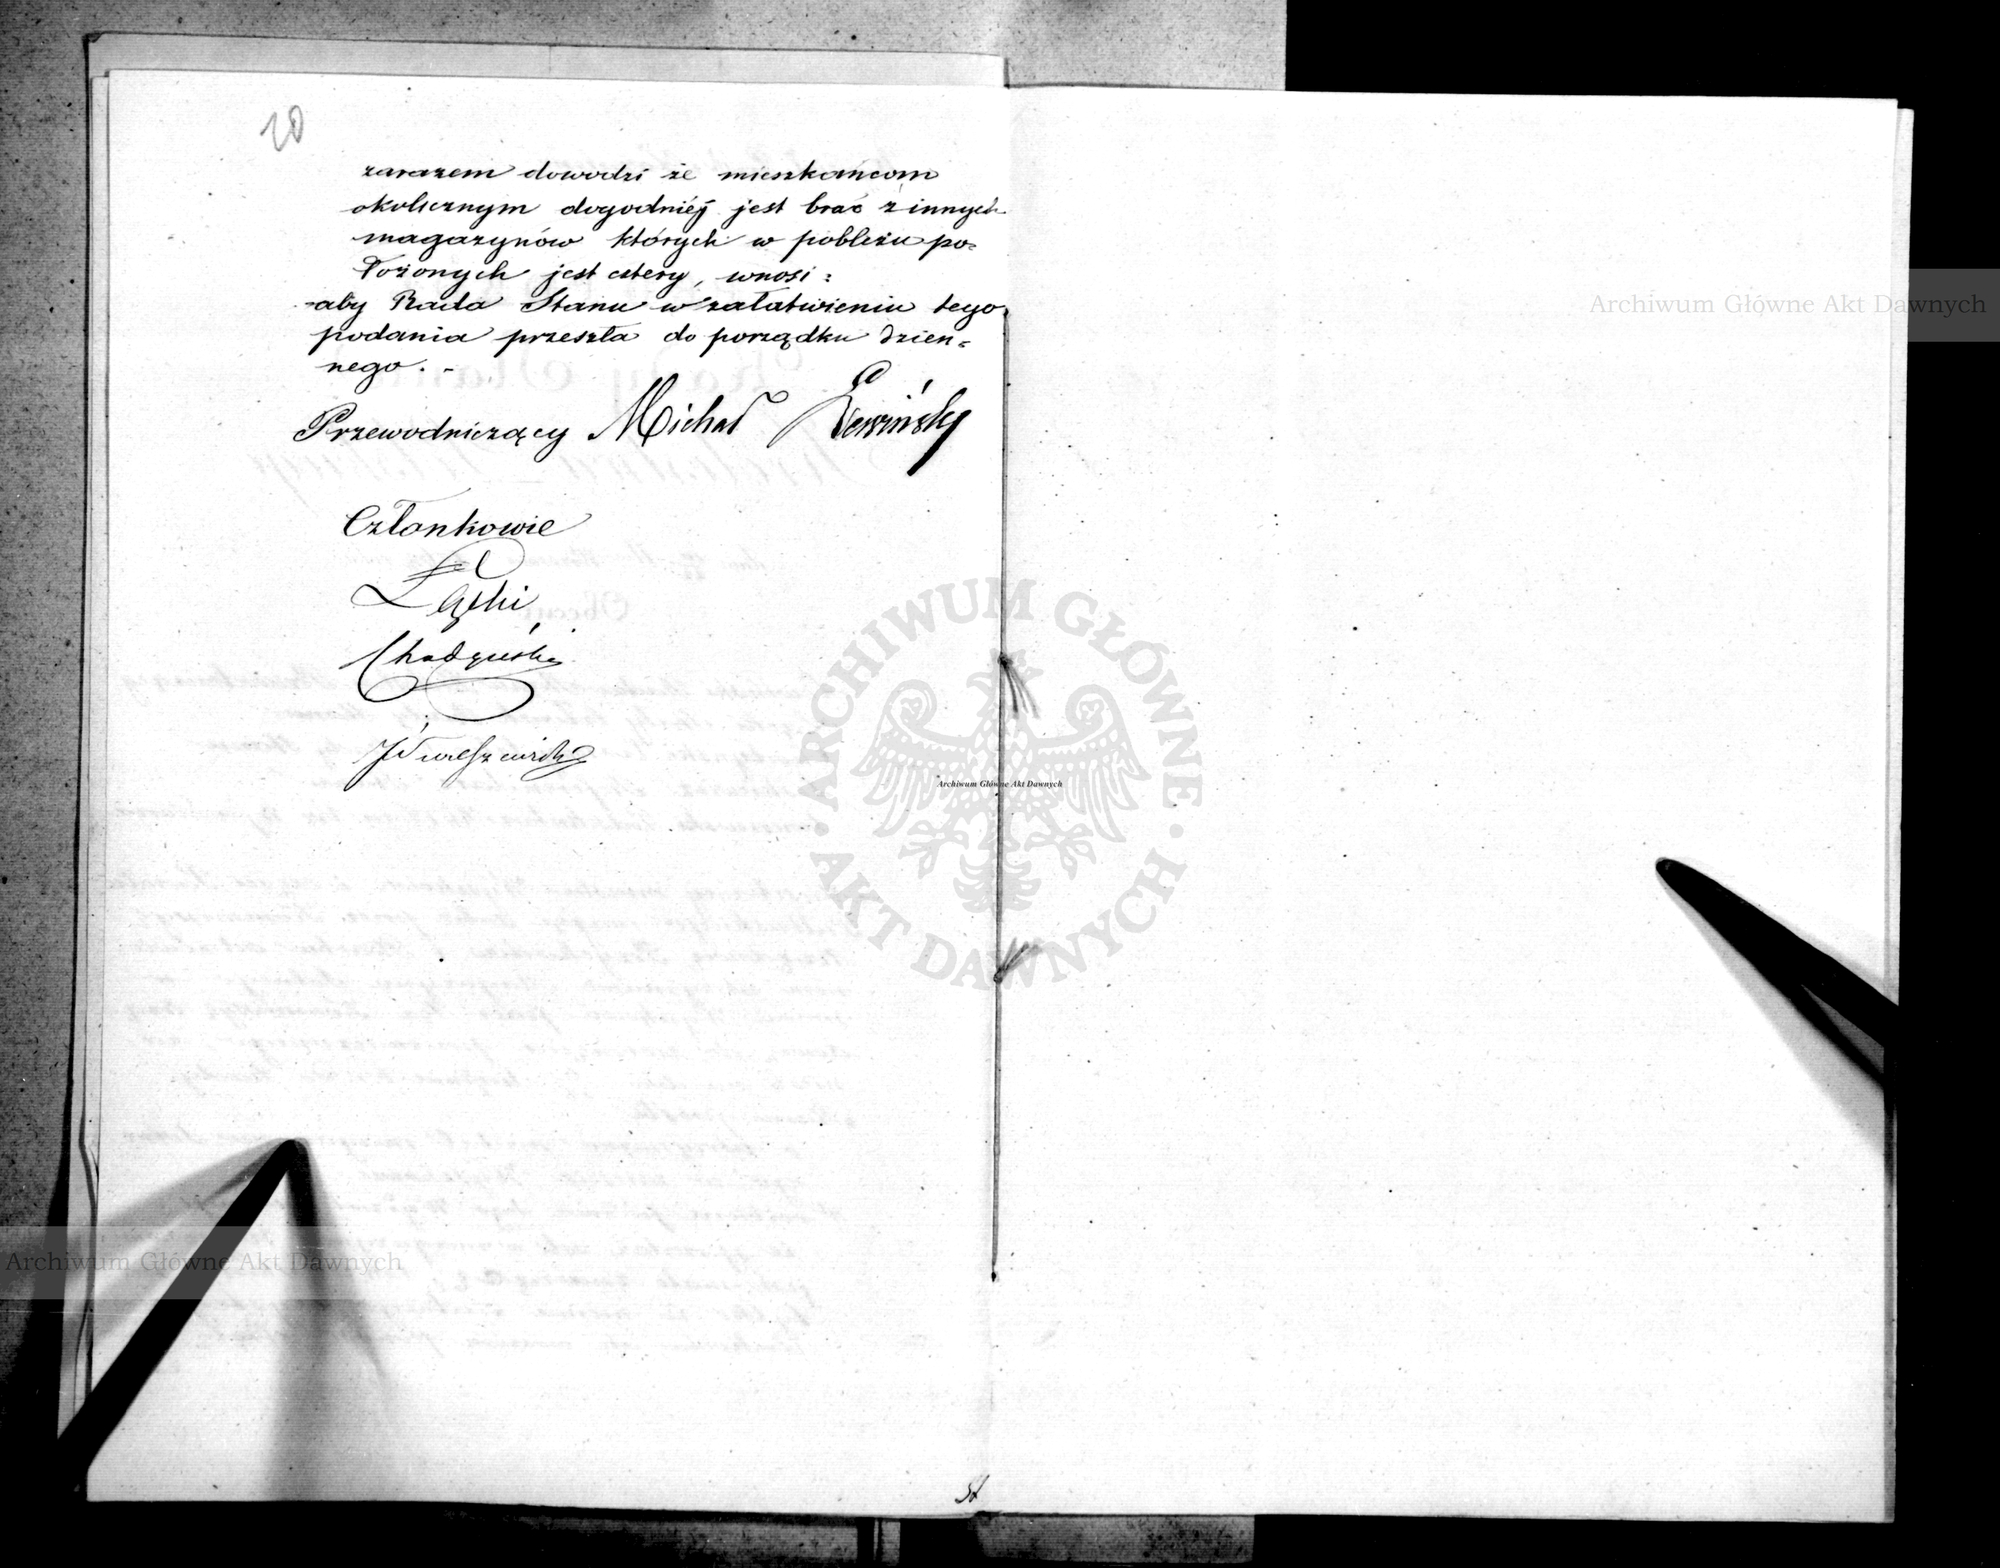 20
zarazem dowodzi że mieszkańcom
okolicznym dogodniéj jest brać z innych
magazynów których w pobliżu po=
łożonych jest cztery, wnosi:
aby Rada Stanu w załatwieniu tego
podania przeszła do porządku dzien=
nego. -
Przewodniczący Michał
Członkowie
Łąski
Chądzyński
Archiwum Główne Akt Dawnych
ARCHIWUM GŁÓWNE AKT DAWNYCH
Archiwum Główne Akt Dawnych
Archiwum Główne Akt Dawnych